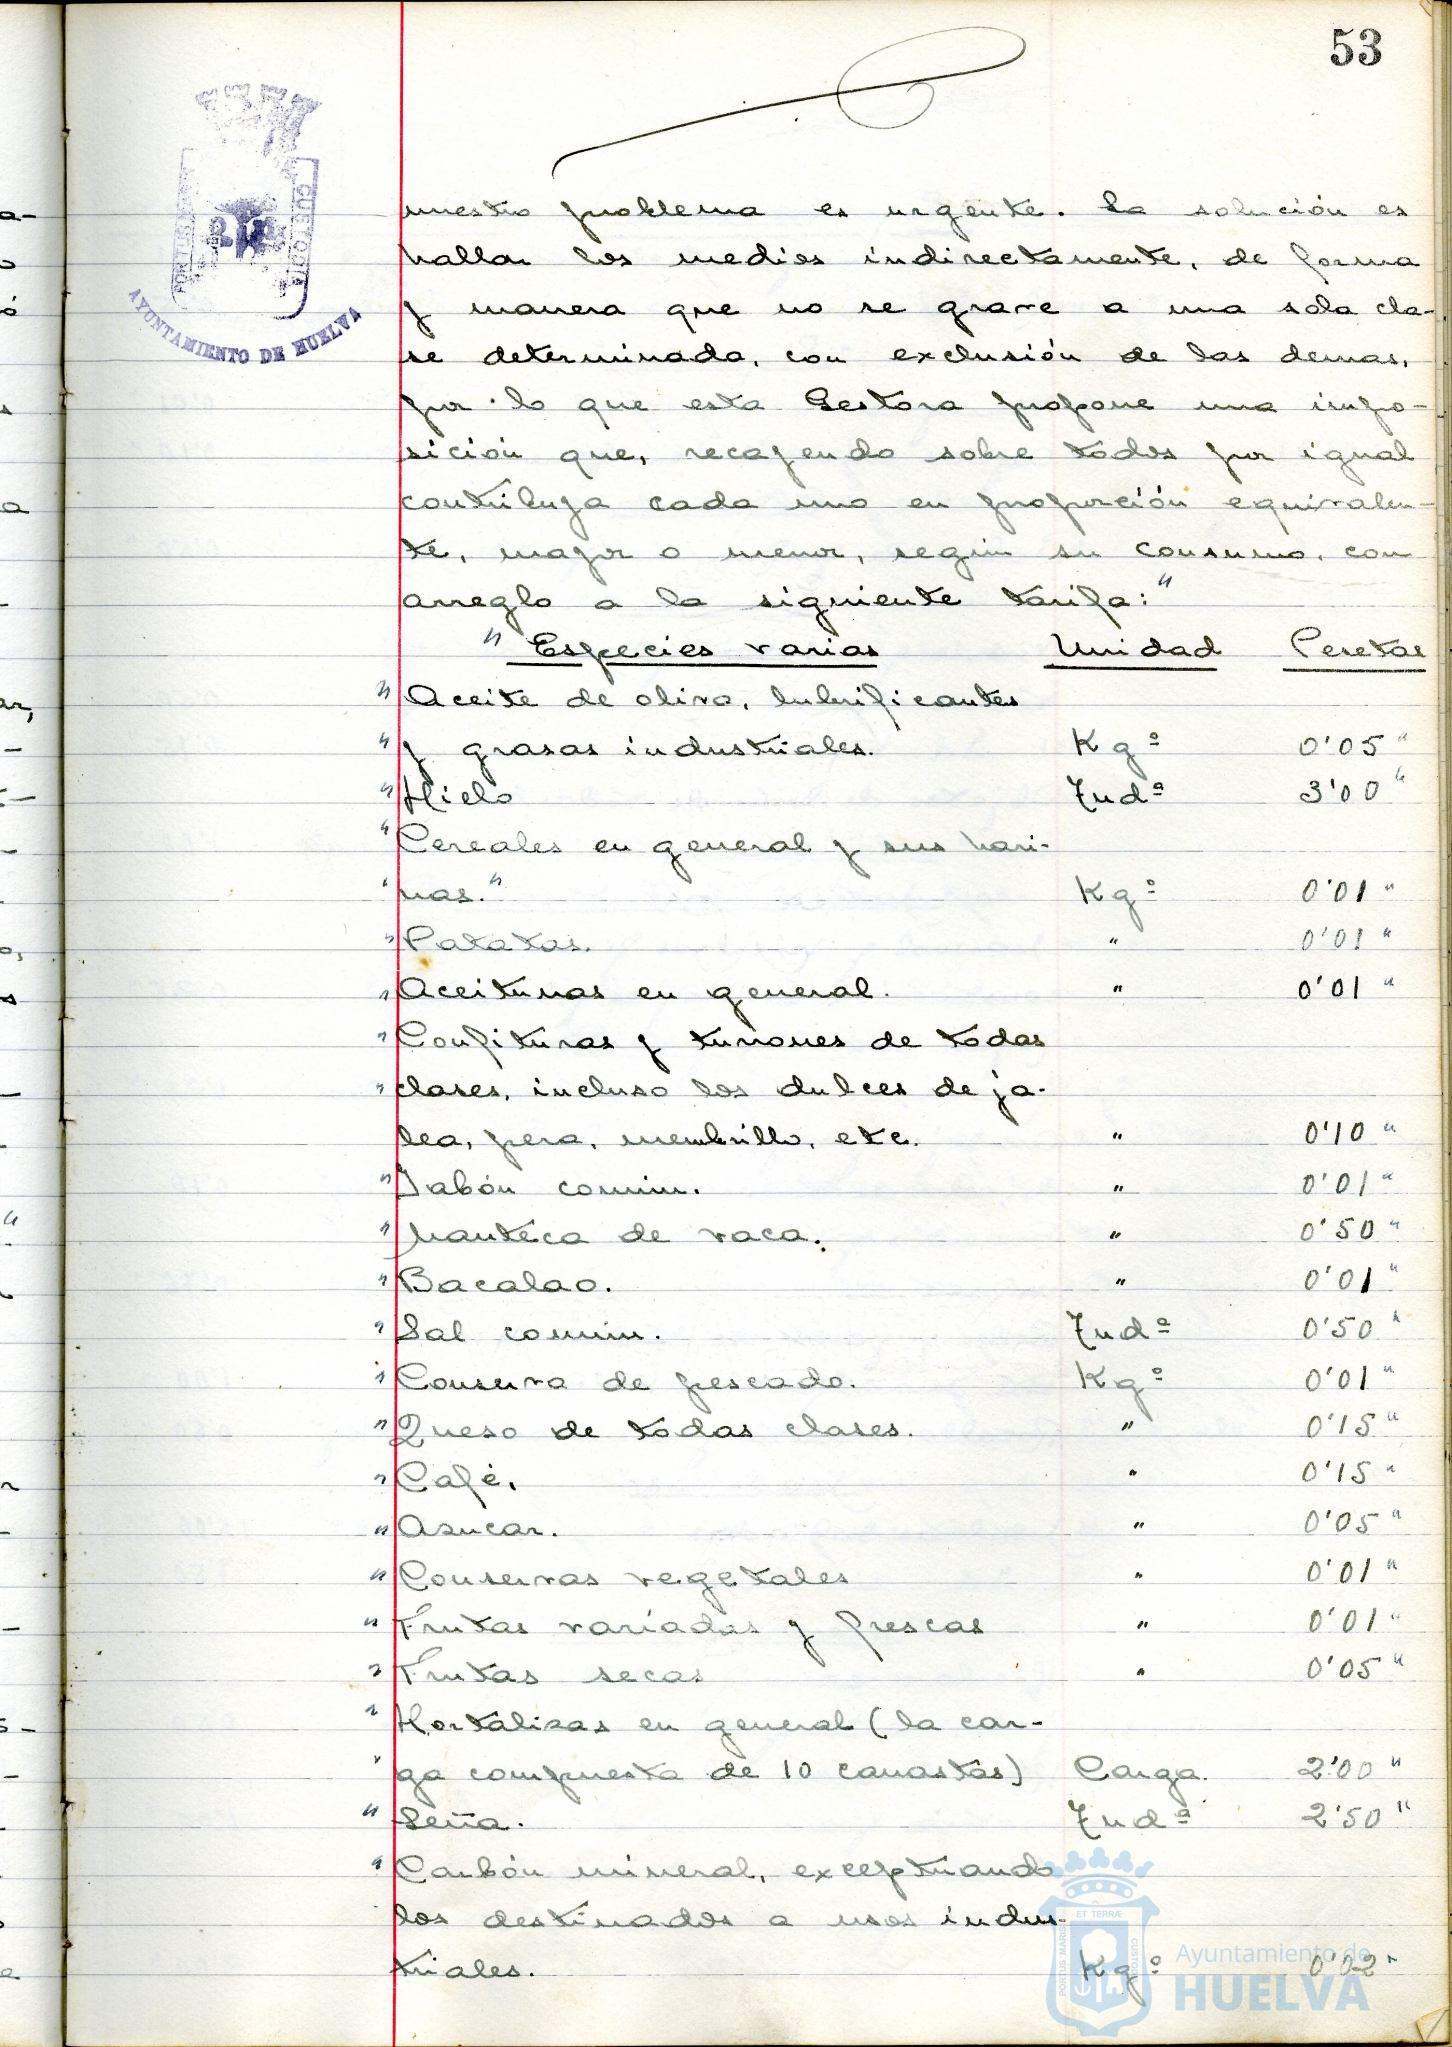 53
PORTUS
CUSTODIA
AYUNTAMIENTO DE HUELVA
nuestro problema es urgente. La solución es
hallar los medios indirectamente, de forma
y manera que no se grave a una sola cla-
se determinada, con exclusión de las demas,
por lo que esta Gestora propone una impo-
sición que, recayendo sobre todos por igual
contribuya cada uno en proporción equivalen-
te, mayor o menor, según su consumo, con
arreglo a la siguiente tarifa:"
" Especies varias Unidad Pesetas
" Aceite de oliva, lubrificantes
" y grasas industriales. Kgº 0'05 "
" Hielo Tndª 3'00 "
" Cereales en general y sus hari-
" nas." Kgº 0'01 "
" Patatas. " 0'01 "
" Aceitunas en general. " 0'01 "
" Confituras y turrones de todas
" clases, incluso los dulces de ja-
lea, pera, membrillo, etc. " 0'10 "
" Jabón común. " 0'01 "
" Manteca de vaca. " 0'50 "
" Bacalao. " 0'01 "
" Sal común. Tndª 0'50 "
" Conserva de pescado. Kgº 0'01 "
" Queso de todas clases. " 0'15 "
" Café. " 0'15 "
" Asucar. " 0'05 "
" Conservas vegetales " 0'01 "
" Frutas variadas y frescas " 0'01 "
" Frutas secas " 0'05 "
" Hortalisas en general (la car-
" ga compuesta de 10 canastas) Carga. 2'00 "
" Leña. Tndª 2'50 "
" Carbón mineral, exceptuando
los destinados a usos indus-
triales. Kgº 0'02 "
ET TERRÆ
PORTUS MARIS
CUSTODIA
Ayuntamiento de
HUELVA